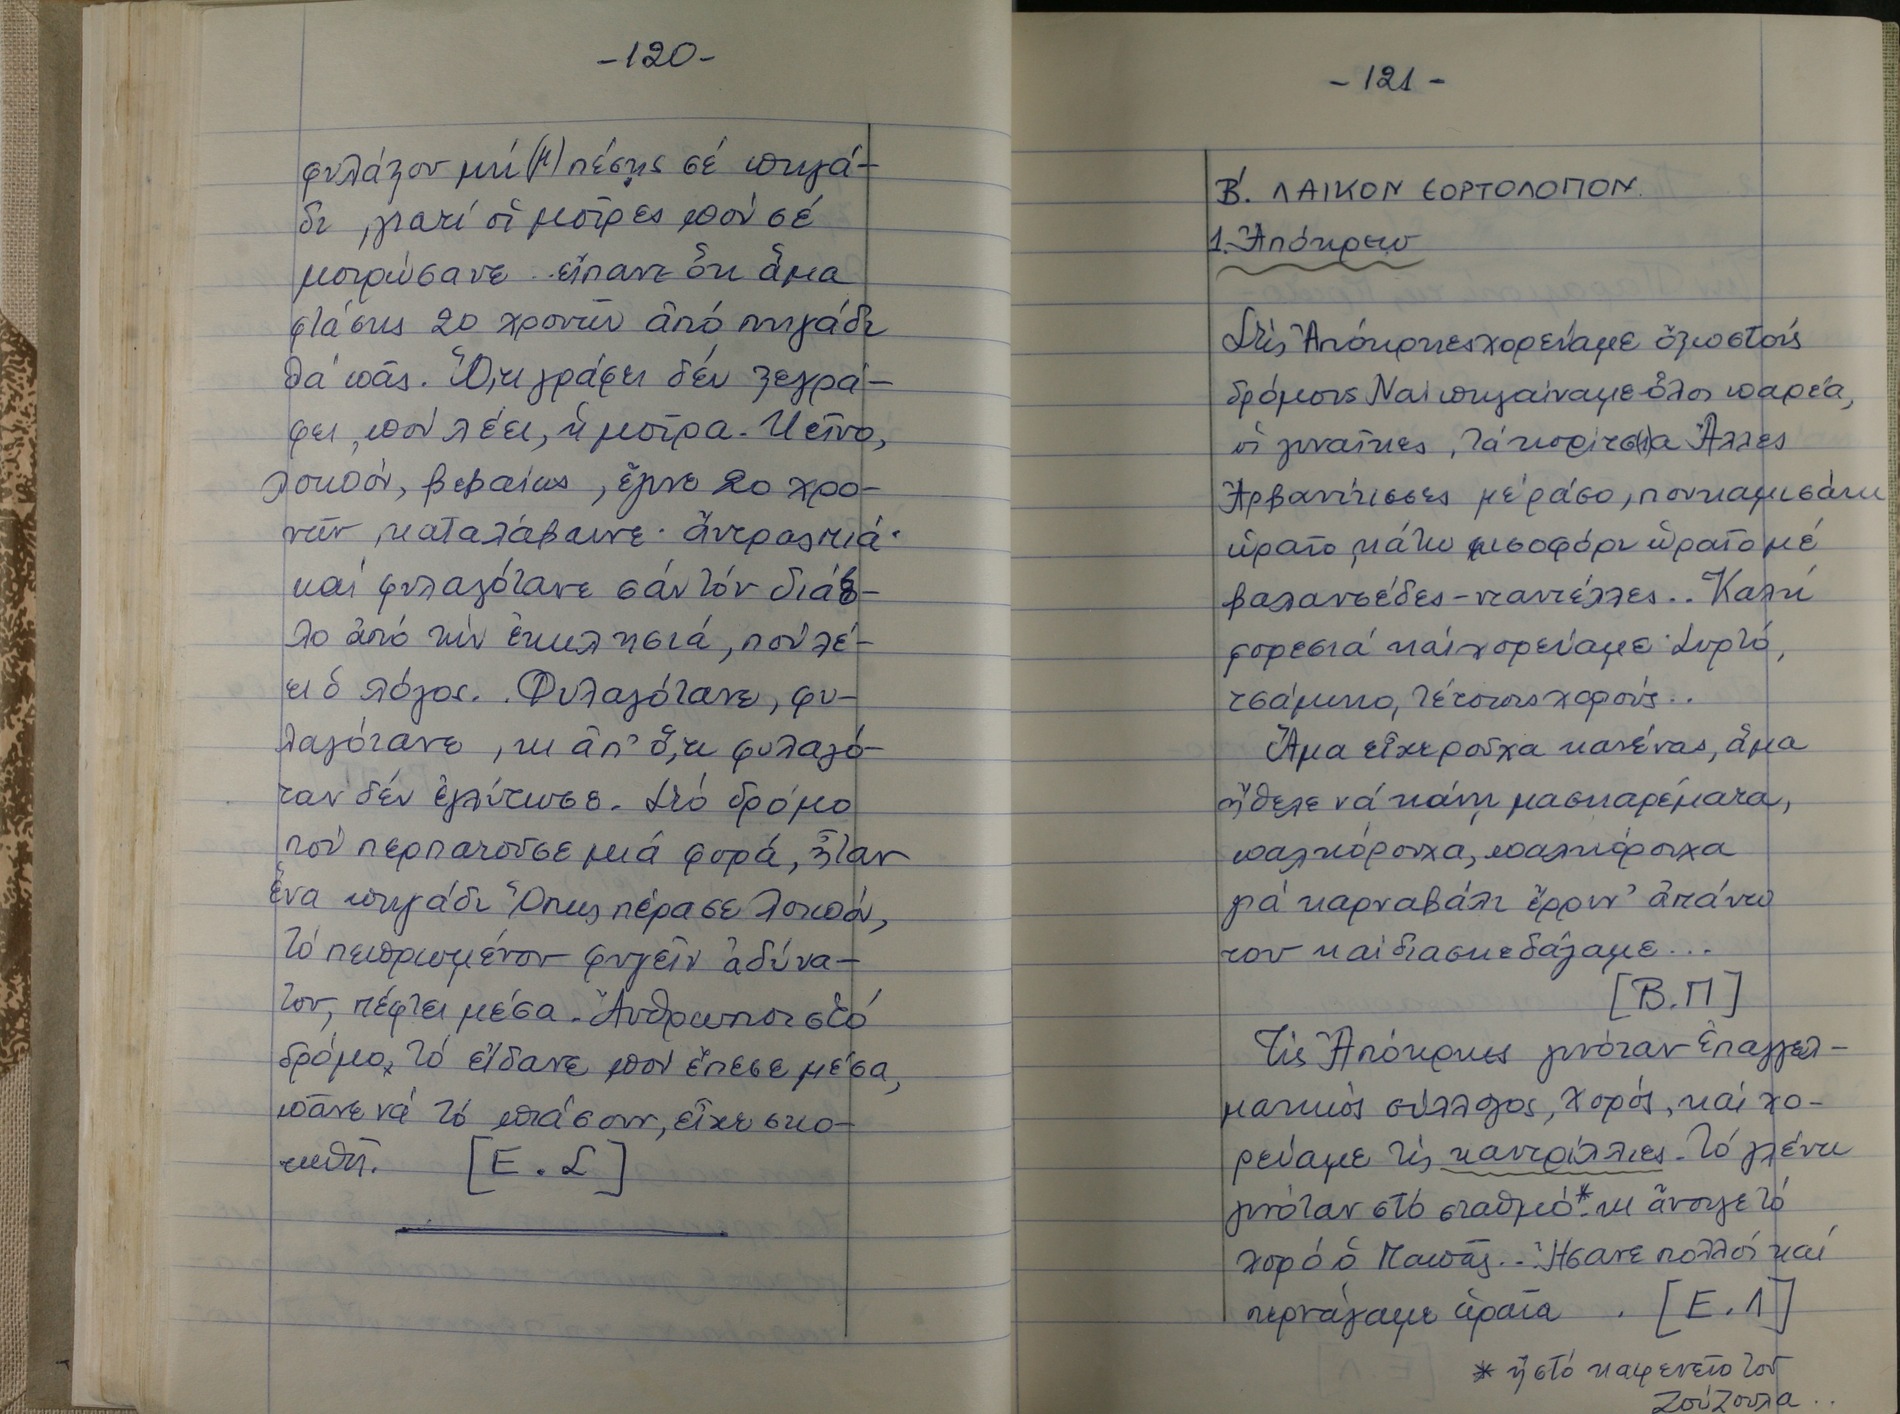 -120-
φυλάξου μή(μ)πέσης σέ πηγά-
δι, γιατί οἱ μοῖρες πού σέ
μοιρώσανε εἴπανε ὅτι ἅμα
φτάσης 20 χρονῶν ἀπό πηγάδι
θά πᾶς. Ὅ,τι γράφει δέν ξεγρά-
φει, πού λέει, ἡ μοῖρα. Κεῖνο,
λοιπόν, βεβαίως, ἔγινε 20 χρο-
νῶν, καταλάβαινε. ἄντρας πιά.
καί φυλαγότανε σάν τόν διάβ-
λο ἀπό τήν ἐκκλησιά, πού λέ-
ει ὁ λόγος.. Φυλαγότανε, φυ-
λαγότανε, κι ἀπ' ὅ,τι φυλαγό-
ταν δέν ἐγλύτωσε. Στό δρόμο
πού περπατοῦσε μιά φορά, ἦταν
ἕνα πηγάδι Ὅπως πέρασε λοιπόν,
τό πεπρωμένον φυγεῖν ἀδύνα-
τον, πέφτει μέσα. Ἄνθρωποι στό
δρόμο, τό εἴδανε πού ἔπεσε μέσα,
πᾶνε νά τό πιάσουν, εἶχε σκο-
τωθῆ. [Ε.Σ]
-121-
Β'. ΛΑΙΚΟΝ ΕΟΡΤΟΛΟΓΙΟΝ.
1. Ἀπόκρεω
Στίς Ἀπόκριες χορεύαμε ὄξω στούς
δρόμους Ναί πηγαίναμε ὅλοι παρέα,
οἱ γυναῖκες, τά κορίτσ(ι)α Ἄλλες
Ἀρβανίτισσες μέ ράσο, πουκαμισάκι
ὡραῖο, κάτω μισοφόρι ὡραῖο μέ
βαλανσέδες-νταντέλλες.. Καλή
φορεσιά καί χορεύαμε. Συρτό,
τσάμικο, τέτοιους χορούς..
Ἅμα εἶχε ροῦχα κανένας, ἅμα
ἤθελε νά κάνη μασκαρέματα,
παλιόρουχα, παλιόρουχα
γιά καρναβάλι ἔρριν' ἀπάνω
του καί διασκεδάζαμε...
[Β.Π]
Τίς Ἀπόκριες γινόταν ἐπαγγελ-
ματικός σύλλογος, χορός, καί χο-
ρεύαμε τίς καντρίλλιες. Τό γλέντι
γινόταν στό σταθμό*. κι ἄνοιγε τό
χορό ὁ Παπᾶς.. Ἤσανε πολλοί καί
περνάγαμε ὡραῖα . [Ε.Λ]
* ἤ στό καφενεῖο τοῦ
Ζούζουλα ..